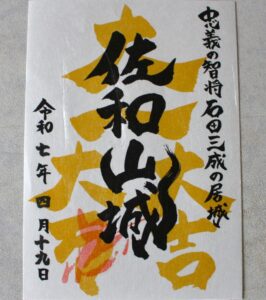 忠義の智将石田三成の居城
佐和山城
大一大万大吉
令和七年四月十九日